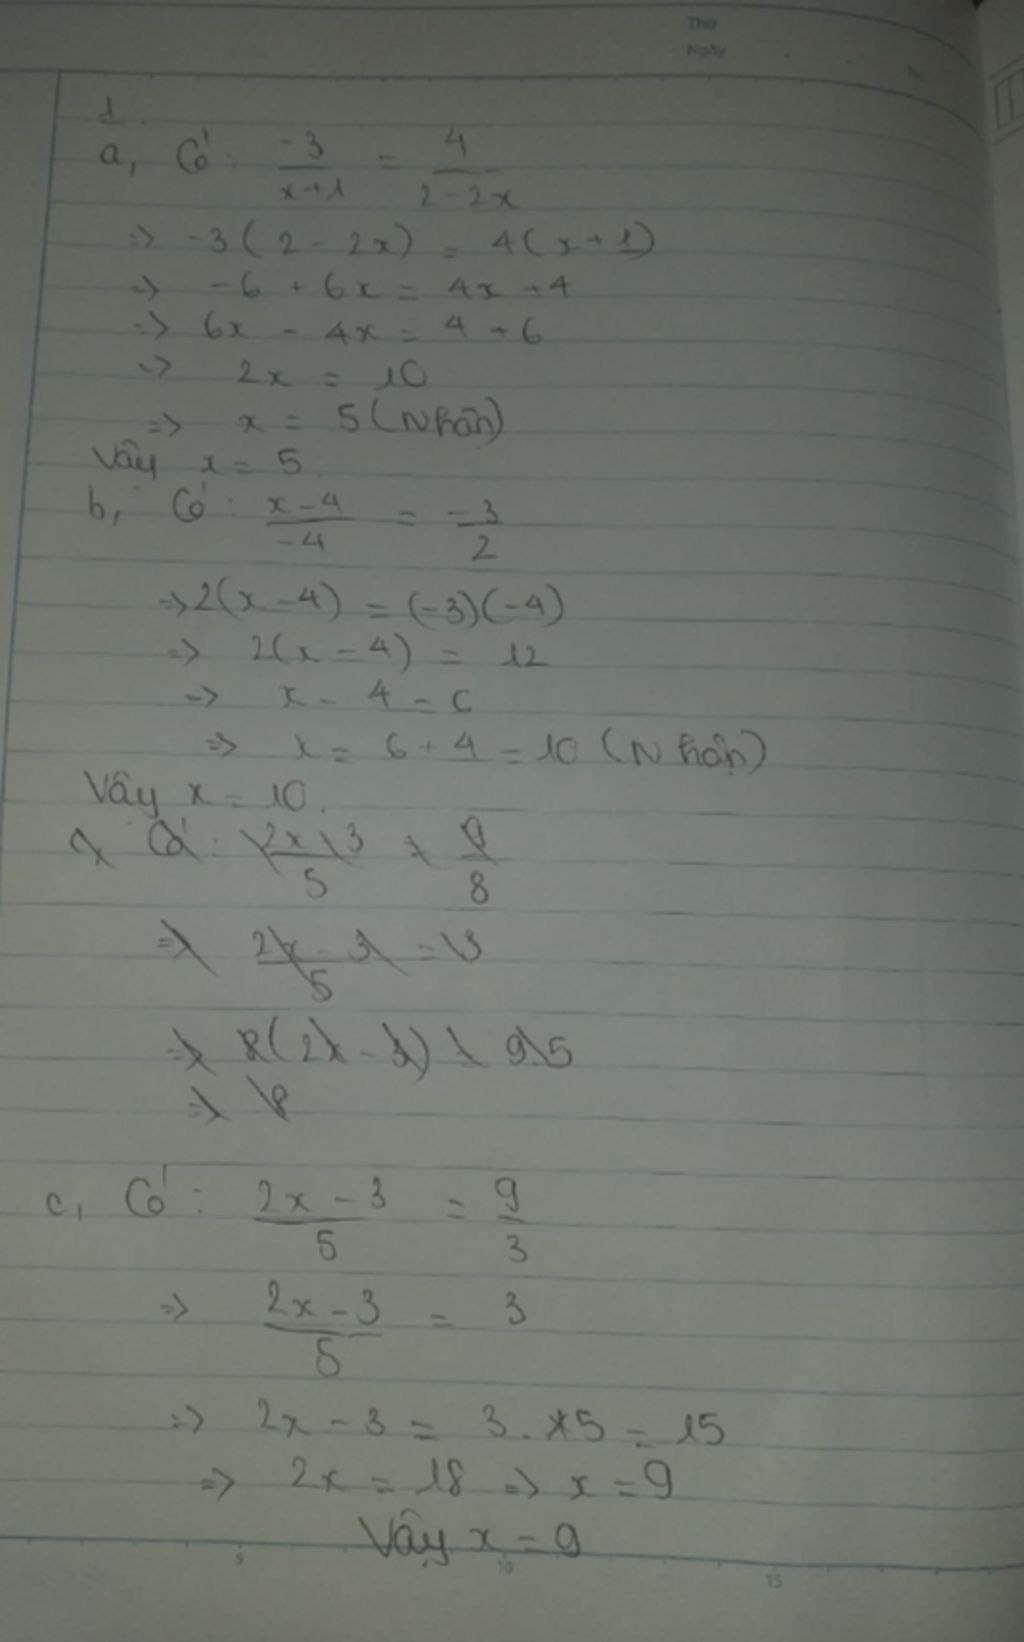 Thứ
Ngày
1
a, Có: -3/(x+1) = 4/(2-2x)
=> -3(2-2x) = 4(x+1)
=> -6 + 6x = 4x + 4
=> 6x - 4x = 4 + 6
=> 2x = 10
=> x = 5 (Nhận)
Vậy x = 5
b, Có: (x-4)/-4 = -3/2
=> 2(x-4) = (-3)(-4)
=> 2(x-4) = 12
=> x - 4 = 6
=> x = 6 + 4 = 10 (Nhận)
Vậy x = 10.
Có: (2x-3)/5 = 9/8
=> (2x-3)/5 =
=> 8(2x-3) = 9.5
=> 18
c, Có: (2x-3)/5 = 9/3
=> (2x-3)/5 = 3
=> 2x - 3 = 3.5 = 15
=> 2x = 18 => x = 9
Vậy x = 9
5 10 15